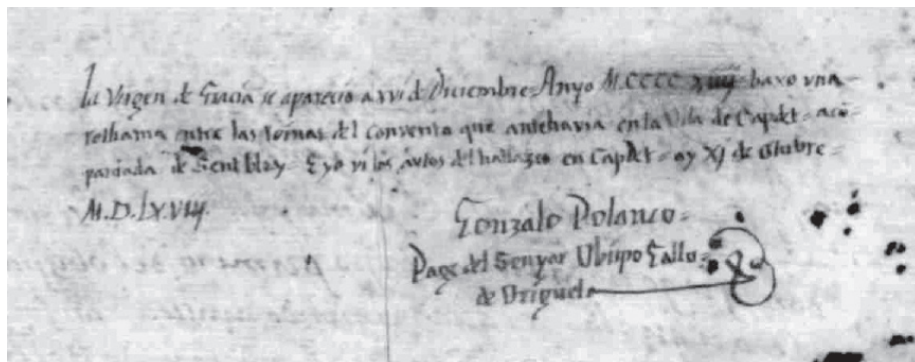 La Virgen de Gracia se apareció a xvi de Diciembre Anyo M.CCCC xiiij baxo una
rethama entre las roinas del convento que antehavia en la Vila de Capdet = aco-
paniada de Sent Blay = E yo vi los autos del hallazgo en Capdet = oy XJ de Otubre =
M.D.lx.viij.
Gonzalo Polanco =
Page del Senyor Obispo Gallo =
de Origuela